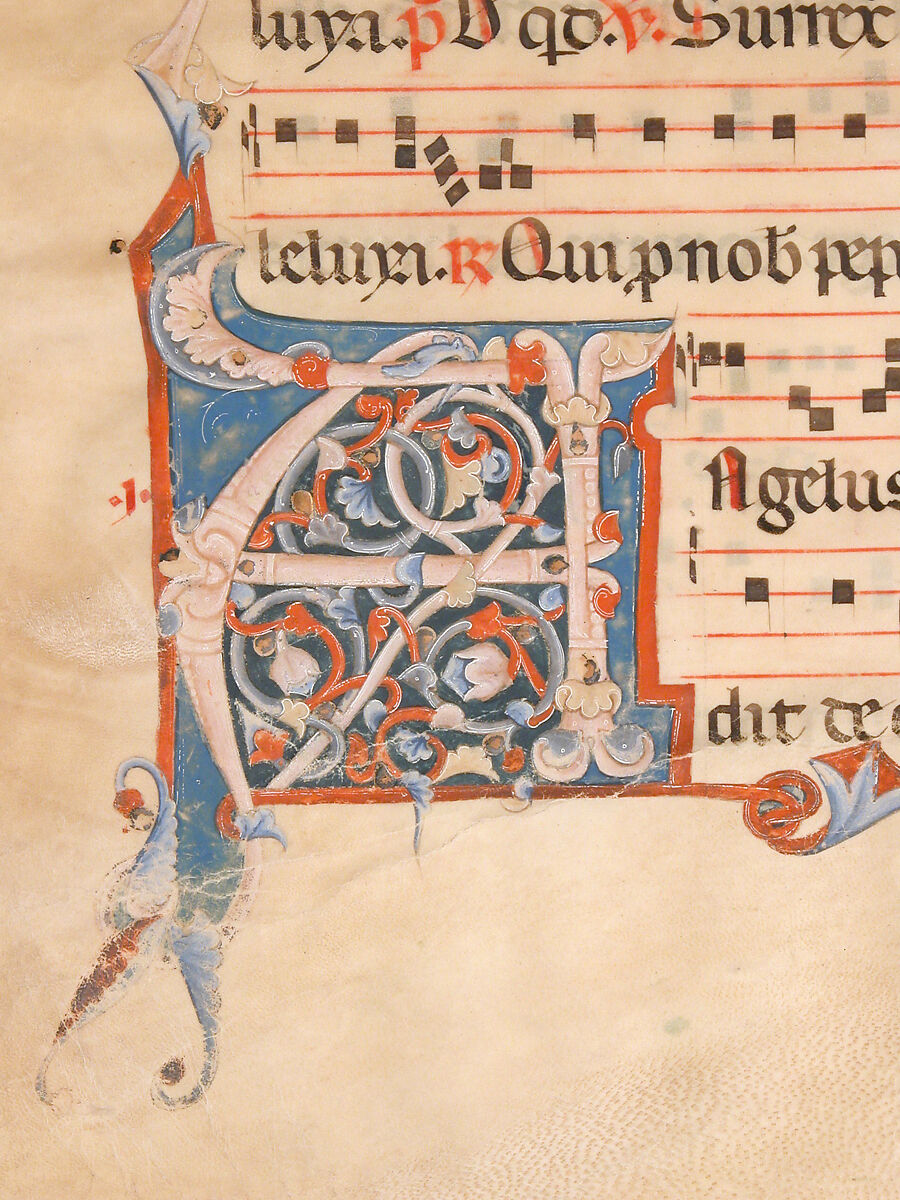 luya. p̄ V qd. v. Surrex
leluya. R Qui p nob pep
.j. A
Agelus
dit de c